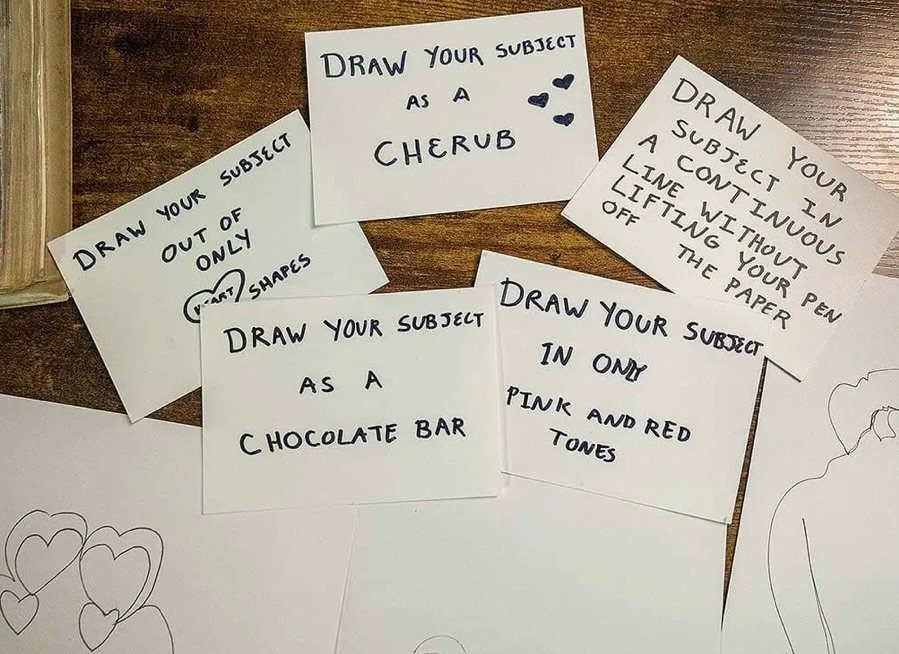 DRAW YOUR SUBJECT
AS A
CHERUB
DRAW YOUR
SUBJECT IN
A CONTINUOUS
LINE WITHOUT
LIFTING YOUR PEN
OFF THE PAPER
DRAW YOUR SUBJECT
OUT OF
ONLY
HEART SHAPES
DRAW YOUR SUBJECT
AS A
CHOCOLATE BAR
DRAW YOUR SUBJECT
IN ONLY
PINK AND RED
TONES